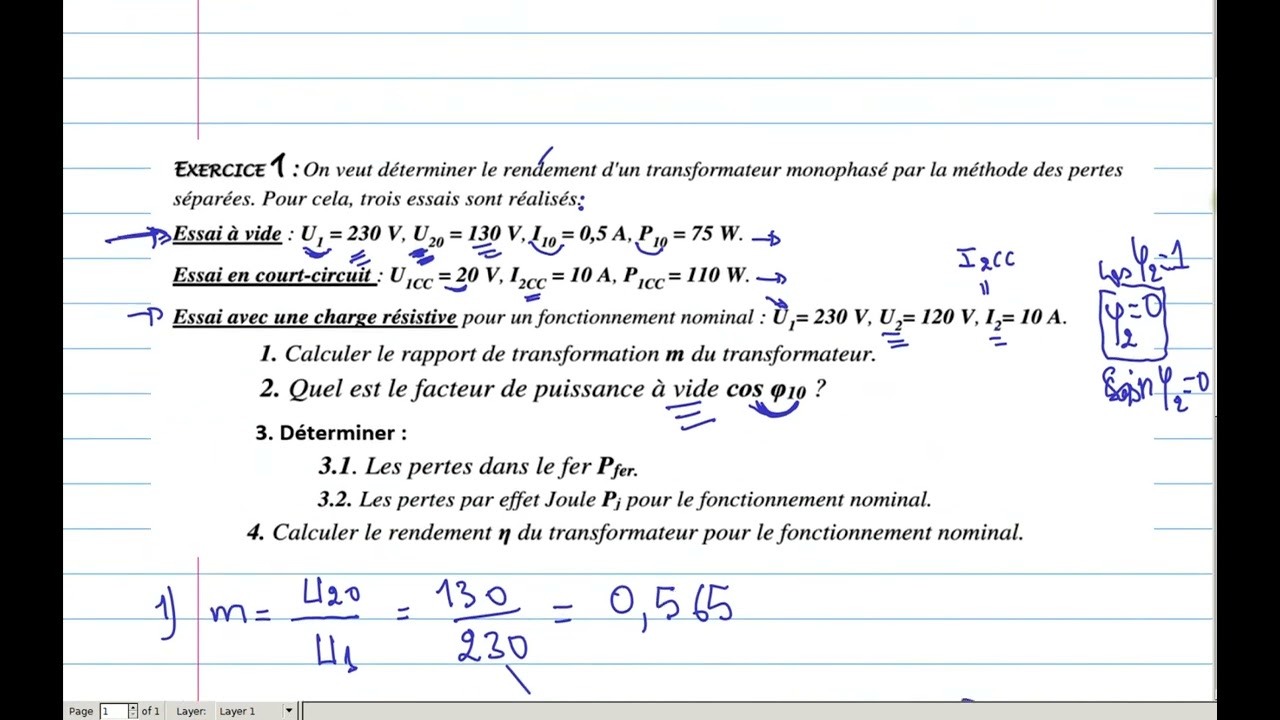 EXERCICE 1 : On veut déterminer le rendement d'un transformateur monophasé par la méthode des pertes
séparées. Pour cela, trois essais sont réalisés:
Essai à vide : U1 = 230 V, U20 = 130 V, I10 = 0,5 A, P10 = 75 W.
Essai en court-circuit : U1CC = 20 V, I2CC = 10 A, P1CC = 110 W.
I2CC
=
Essai avec une charge résistive pour un fonctionnement nominal : U1= 230 V, U2= 120 V, I2= 10 A.
cos φ2=1
φ2=0
sin φ2=0
1. Calculer le rapport de transformation m du transformateur.
2. Quel est le facteur de puissance à vide cos φ10 ?
3. Déterminer :
3.1. Les pertes dans le fer Pfer.
3.2. Les pertes par effet Joule Pj pour le fonctionnement nominal.
4. Calculer le rendement η du transformateur pour le fonctionnement nominal.
1) m = U20 / U1 = 130 / 230 = 0,565
Page 1 of 1 Layer: Layer 1